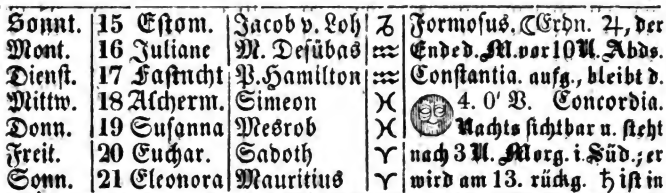 Sonnt. 15 Estom. Jacob v. Loh ♑ Formosus. ☾Erdn. ♃, der
Mont. 16 Juliane M. Desübas ♒ Ende d. M. vor 10 U. Abds.
Dienst. 17 Fastncht P. Hamilton ♒ Constantia. aufg., bleibt d.
Mittw. 18 Ascherm. Simeon ♓ 4. 0' V. Concordia.
Donn. 19 Susanna Mesrob ♓ Nachts sichtbar u. steht
Freit. 20 Euchar. Sadoth ♈ nach 3 U. Morg. i. Süd.; er
Sonn. 21 Eleonora Mauritius ♈ wird am 13. rückg. ♄ ist in